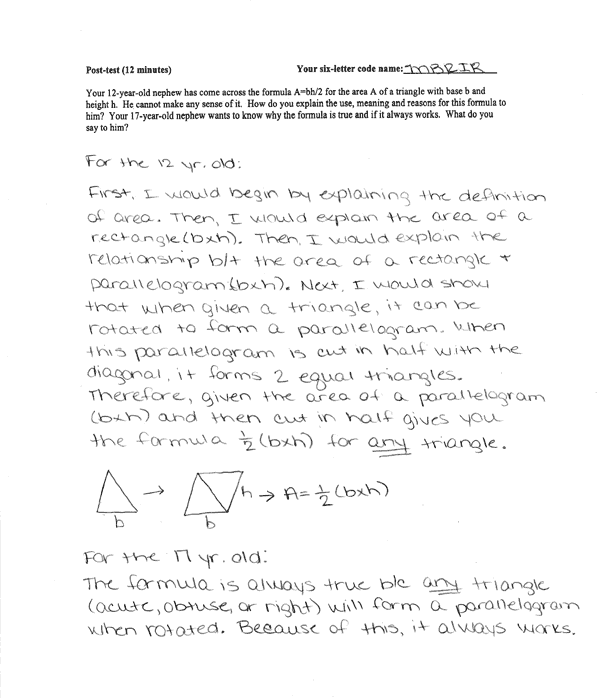 Post-test (12 minutes) Your six-letter code name: MBRIR
Your 12-year-old nephew has come across the formula A=bh/2 for the area A of a triangle with base b and
height h. He cannot make any sense of it. How do you explain the use, meaning and reasons for this formula to
him? Your 17-year-old nephew wants to know why the formula is true and if it always works. What do you
say to him?
For the 12 yr. old:
First, I would begin by explaining the definition
of area. Then, I would explain the area of a
rectangle (bxh). Then, I would explain the
relationship b/t the area of a rectangle +
parallelogram (bxh). Next, I would show
that when given a triangle, it can be
rotated to form a parallelogram. When
this parallelogram is cut in half with the
diagonal, it forms 2 equal triangles.
Therefore, given the area of a parallelogram
(bxh) and then cut in half gives you
the formula ½ (bxh) for any triangle.
→ h → A = ½ (bxh)
b b
For the 17 yr. old:
The formula is always true b/c any triangle
(acute, obtuse, or right) will form a parallelogram
when rotated. Because of this, it always works.